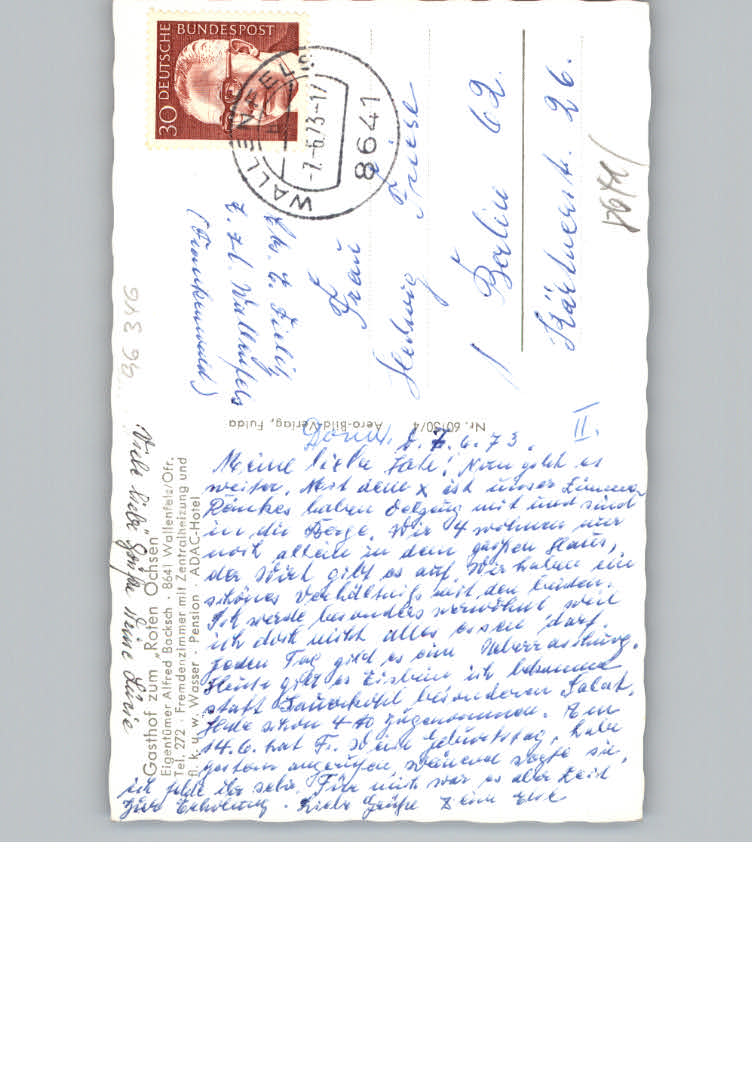 30 DEUTSCHE BUNDESPOST
WALLENFELS
-7.-6.73-1
8641
z. Zt. Wallenfels
(Frankenwald)
Frau
Hedwig Friese
1 Berlin 62.
Kärtnerstr. 26.
06 346
Nr. 60130/4 Aero-Bild-Verlag, Fulda
II.
Donn. d. 7.6.73.
Meine liebe Hale! Nun geht es
weiter. Mit dem x ist unser Zimmer.
haben und sind
in die Berge. Wir 4 wohnen nur
noch allein in dem großen Haus,
der Wirt gibt es auf. Wir haben ein
schönes Verhältnis mit den beiden.
Ich werde besonders verwöhnt, weil
ich doch nicht alles essen darf.
Jeden Tag gibt es eine Überraschung.
Heute gibt es Eisbein ich bekomme
statt Sauerkohl besonderen Salat.
Habe schon 4 zugenommen. Am
14.6. hat Fr. Geburtstag, habe
gestern angerufen weinend sagte sie,
ich fehle ihr sehr. Für mich war es aber Zeit
zur Erholung. Liebe Grüße Deine Else
Viele liebe Grüße Deine Lucie
Gasthof zum „Roten Ochsen"
Eigentümer Alfred Backsch · 8641 Wallenfels/Ofr.
Tel. 272 · Fremdenzimmer mit Zentralheizung und
fl. k. u. w. Wasser · Pension · ADAC-Hotel